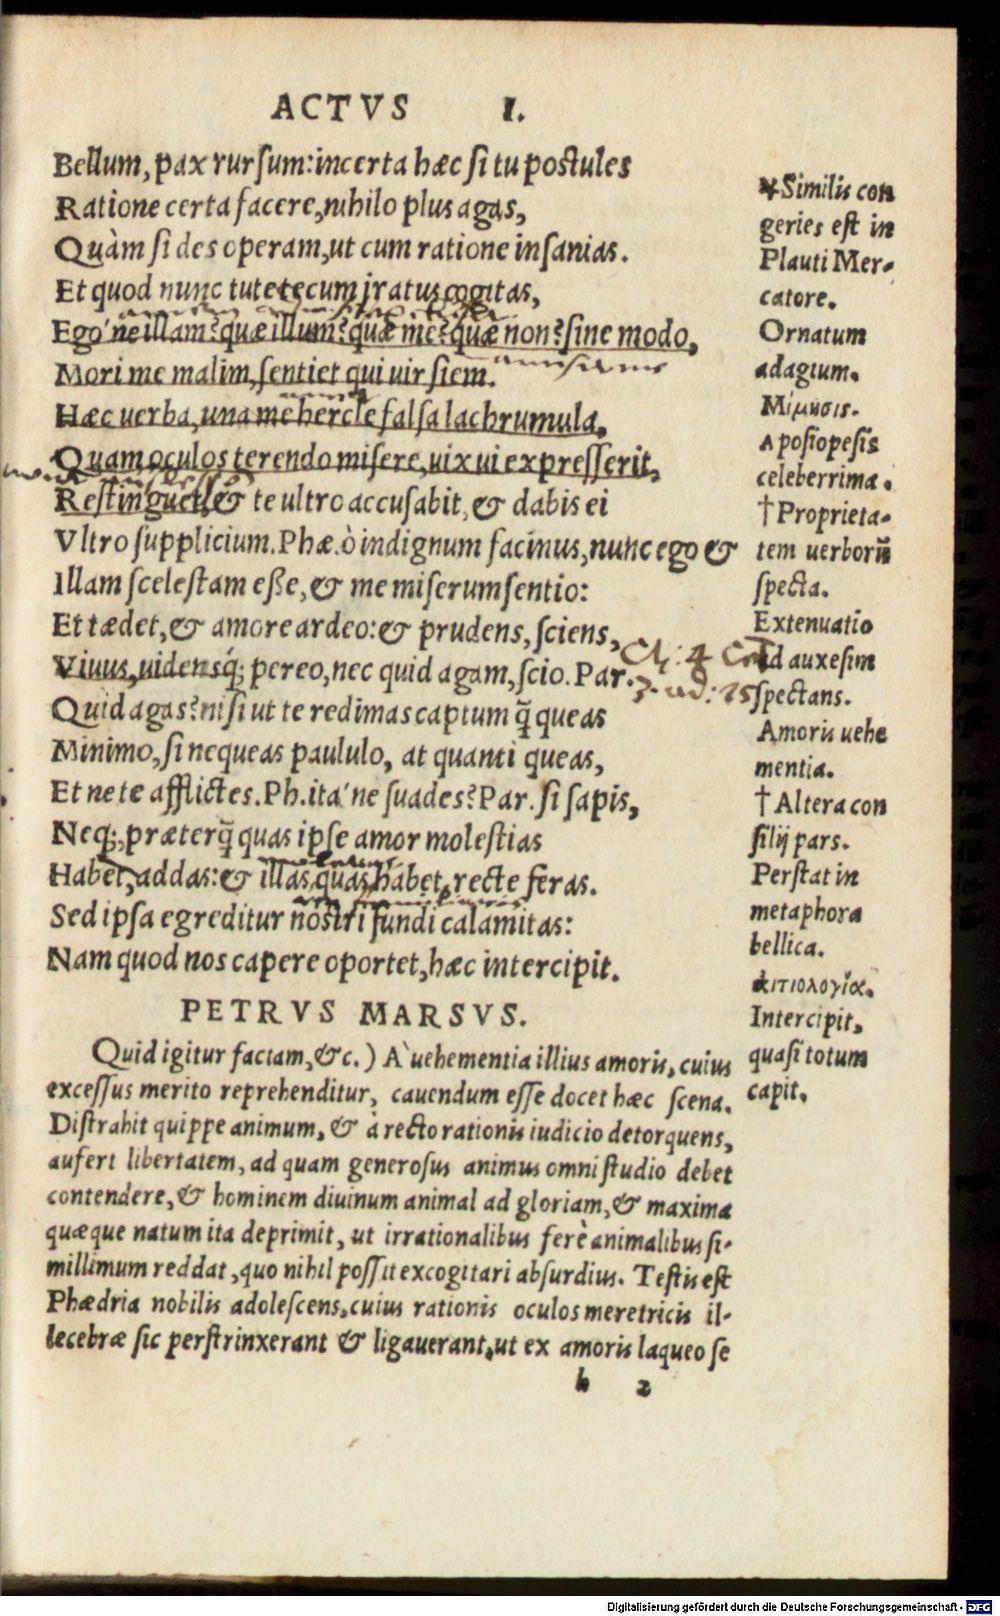 ACTVS I.
Bellum, pax rursum: incerta hæc si tu postules
Ratione certa facere, nihilo plus agas,
Quàm si des operam, ut cum ratione insanias.
Et quod nunc tute tecum iratus cogitas,
Ego'ne illam? quæ illum? quæ me? quæ non? sine modo,
Mori me malim, sentiet qui uir siem.
Hæc uerba, una mehercle falsa lachrumula,
Quam oculos terendo misere, uix ui expresserit,
Restinguet, & te ultro accusabit, & dabis ei
Vltro supplicium. Phæ. ò indignum facinus, nunc ego &
Illam scelestam eße, & me miserum sentio:
Et tædet, & amore ardeo: & prudens, sciens,
Viuus, uidensq́; pereo, nec quid agam, scio. Par.
Quid agas? nisi ut te redimas captum q̃ queas
Minimo, si nequeas paululo, at quanti queas,
Et ne te afflictes. Ph. ita'ne suades? Par. si sapis,
Neq;, præterq̃ quas ipse amor molestias
Habet, addas: & illas, quas habet, recte feras.
Sed ipsa egreditur nostri fundi calamitas:
Nam quod nos capere oportet, hæc intercipit.
PETRVS MARSVS.
Quid igitur faciam, &c.) A' uehementia illius amoris, cuius
excessus merito reprehenditur, cauendum esse docet hæc scena.
Distrahit quippe animum, & à recto rationis iudicio detorquens,
aufert libertatem, ad quam generosus animus omni studio debet
contendere, & hominem diuinum animal ad gloriam, & maxima
quæque natum ita deprimit, ut irrationalibus ferè animalibus si-
millimum reddat, quo nihil possit excogitari absurdius. Testis est
Phædria nobilis adolescens, cuius rationis oculos meretricis il-
lecebræ sic perstrinxerant & ligauerant, ut ex amoris laqueo se
b 2
*Similis con
geries est in
Plauti Mer-
catore.
Ornatum
adagium.
Μίμησις.
Aposiopesis
celeberrima.
†Proprieta-
tem uerborũ
specta.
Extenuatio
ad auxesim
spectans.
Amoris uehe
mentia.
†Altera con
silij pars.
Perstat in
metaphora
bellica.
ἀιτιολογία.
Intercipit,
quasi totum
capit.
Digitalisierung gefördert durch die Deutsche Forschungsgemeinschaft - DFG